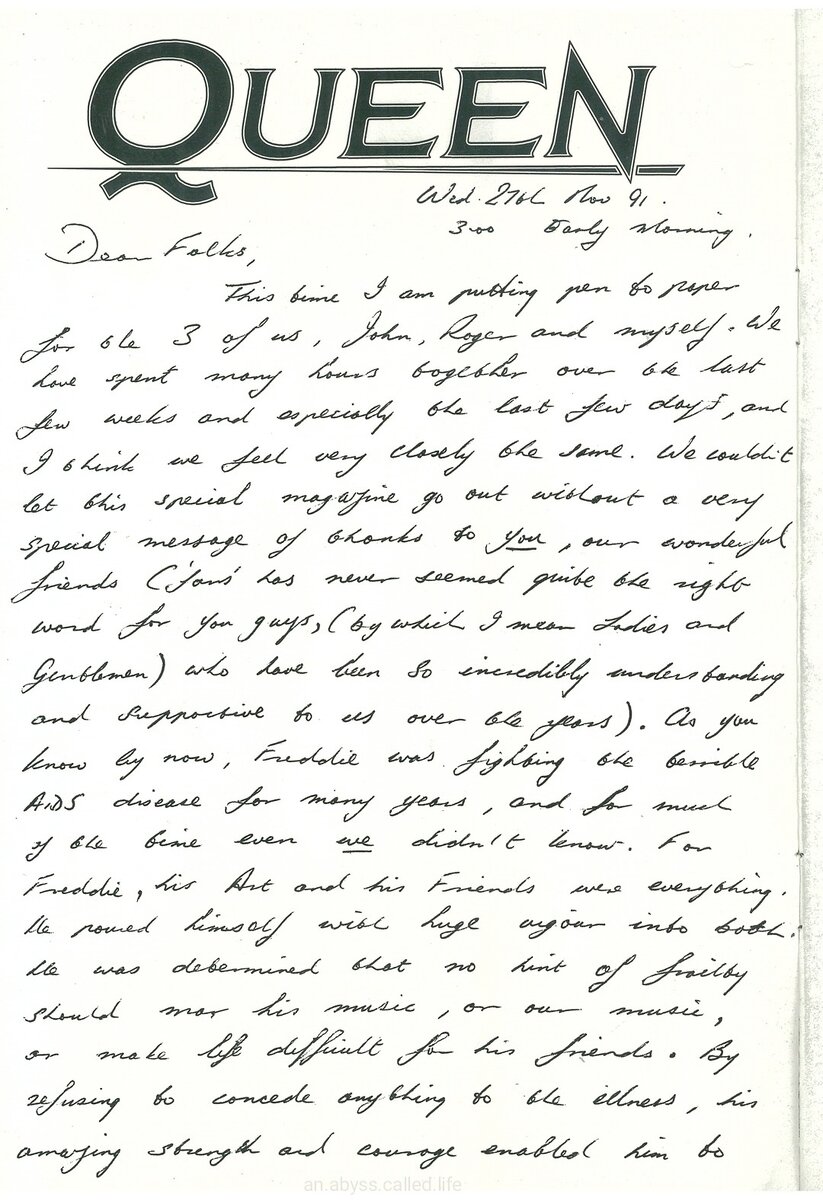 QUEEN
Wed. 27th Nov 91.
3.00 Early Morning.
Dear Folks,
This time I am putting pen to paper
for the 3 of us, John, Roger and myself. We
have spent many hours together over the last
few weeks and especially the last few days, and
I think we feel very closely the same. We couldn't
let this special magazine go out without a very
special message of thanks to you, our wonderful
friends ('fans' has never seemed quite the right
word for you guys, (by which I mean Ladies and
Gentlemen) who have been so incredibly understanding
and supportive to us over the years). As you
know by now, Freddie was fighting the terrible
AIDS disease for many years, and for much
of the time even we didn't know. For
Freddie, his Art and his Friends were everything.
He poured himself with huge vigour into both.
He was determined that no hint of frailty
should mar his music, or our music,
or make life difficult for his friends. By
refusing to concede anything to the illness, his
amazing strength and courage enabled him to
an.abyss.called.life